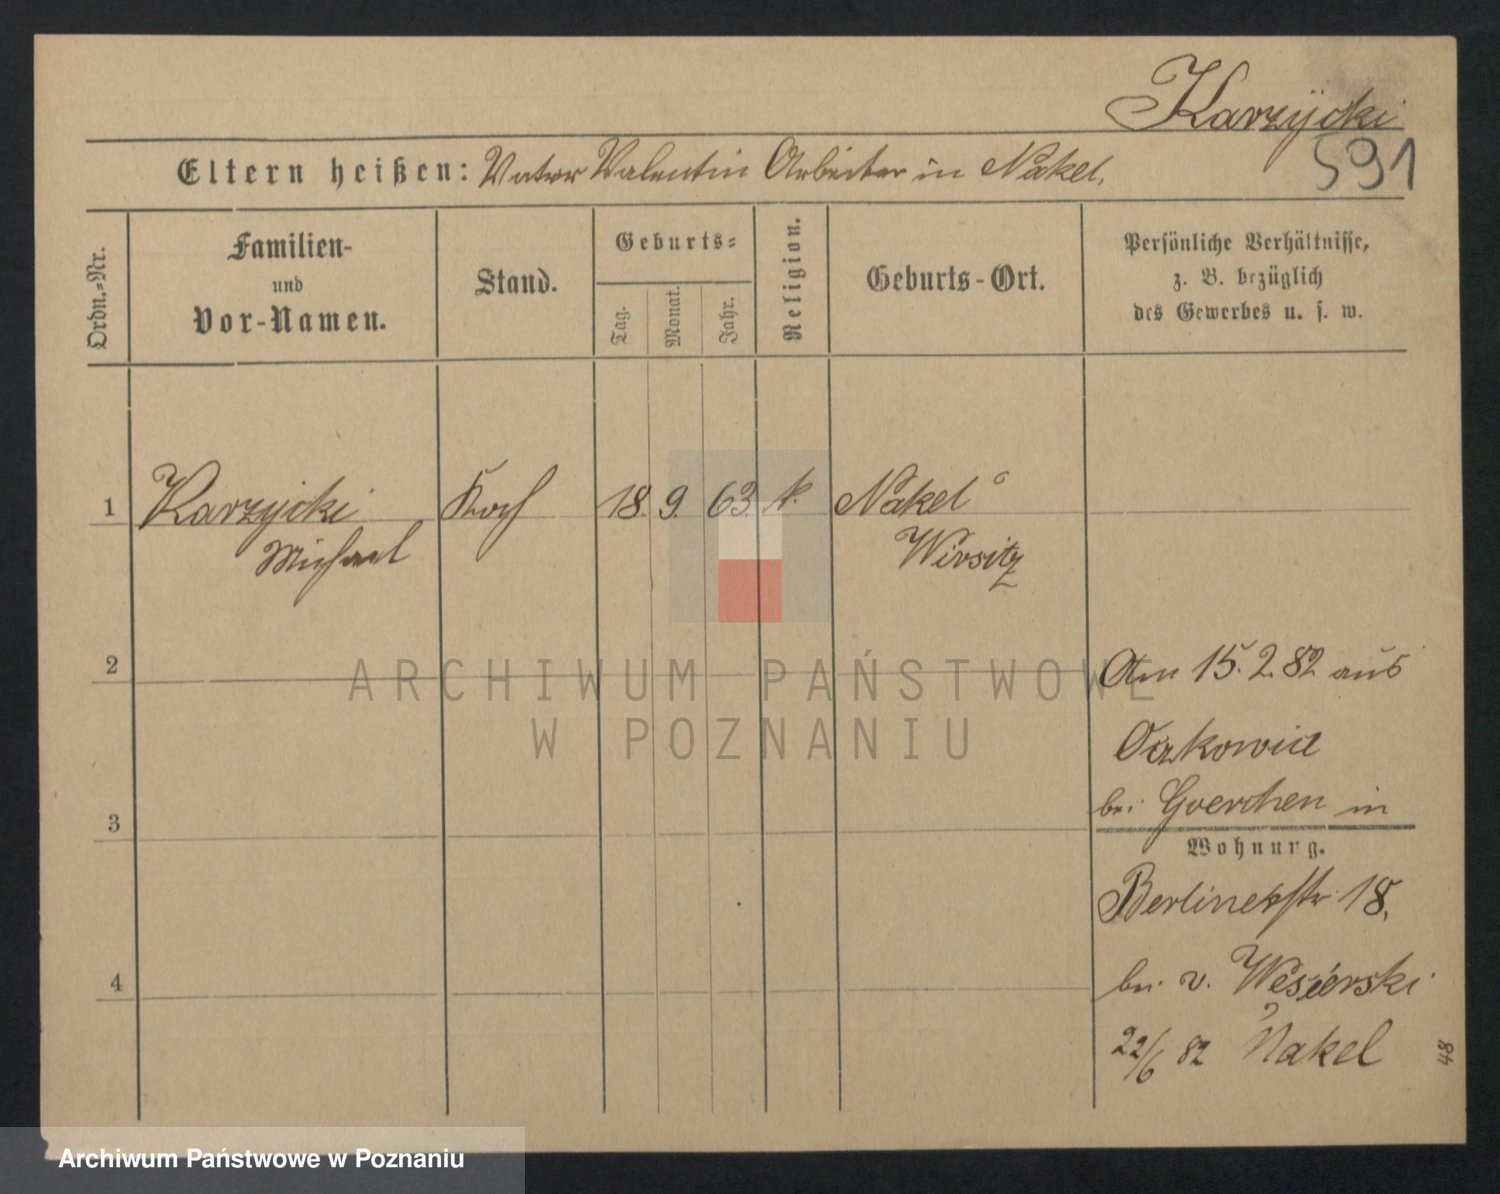 Karzycki
591
Eltern heißen: Vater Valentin Arbeiter in Nakel.
Ordn.-Nr.
Familien-
und
Vor-Namen.
Stand.
Geburts-
Tag.
Monat.
Jahr.
Religion.
Geburts-Ort.
Persönliche Verhältnisse,
z. B. bezüglich
des Gewerbes u. s. w.
1 Karzycki Koch 18. 9. 63. k. Nakel
Michael Wirsitz
2
Am 15.2.82 aus
Oczkowice
bei Goerchen in
3
Wohnung.
Berlinerstr 18.
4
bei v. Wesierski
22/6 82 Nakel
48
ARCHIWUM PAŃSTWOWE
W POZNANIU
Archiwum Państwowe w Poznaniu